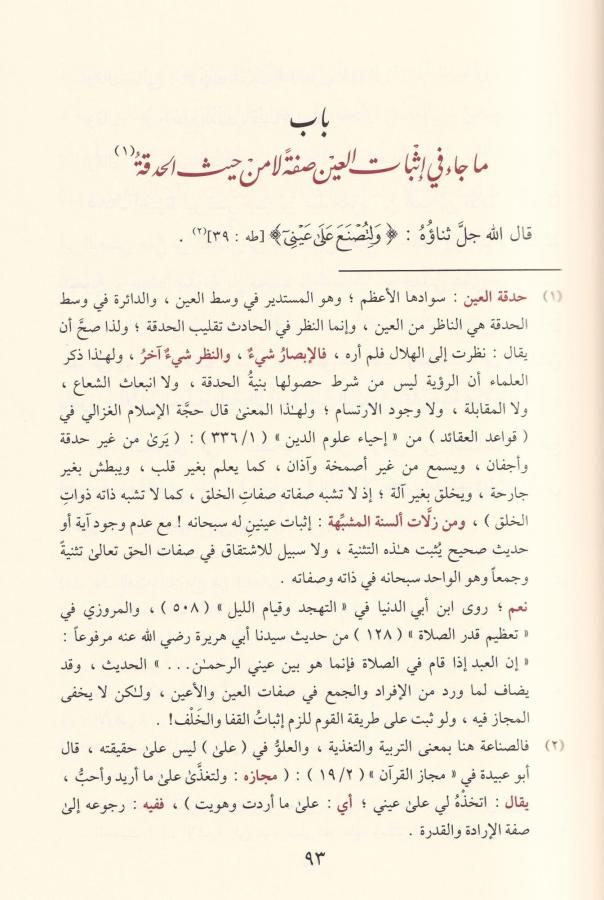 باب
ما جاء في إثبات العين صفةً لا من حيث الحدقةُ(١)
قال الله جلَّ ثناؤُهُ : ﴿ وَلِتُصْنَعَ عَلَىٰ عَيْنِيٓ ﴾ [طه : ٣٩](٢) .
(١) حدقة العين : سوادها الأعظم ؛ وهو المستدير في وسط العين ، والدائرة في وسط
الحدقة هي الناظر من العين ، وإنما النظر في الحادث تقليب الحدقة ؛ ولذا صحَّ أن
يقال : نظرت إلى الهلال فلم أره ، فالإبصارُ شيءٌ ، والنظر شيءٌ آخرُ ، ولهـٰذا ذكر
العلماء أن الرؤية ليس من شرط حصولها بنيةُ الحدقة ، ولا انبعاث الشعاع ،
ولا المقابلة ، ولا وجود الارتسام ؛ ولهـٰذا المعنىٰ قال حجَّة الإسلام الغزالي في
( قواعد العقائد ) من « إحياء علوم الدين » ( ١/ ٣٣٦ ) : ( يَرىٰ من غير حدقة
وأجفان ، ويسمع من غير أصمخة وآذان ، كما يعلم بغير قلب ، ويبطش بغير
جارحة ، ويخلق بغير آلة ؛ إذ لا تشبه صفاته صفاتِ الخلق ، كما لا تشبه ذاته ذواتِ
الخلق ) ، ومن زلَّات ألسنة المشبِّهة : إثبات عينينِ له سبحانه ! مع عدم وجود آية أو
حديث صحيح يُثبت هـٰذه التثنية ، ولا سبيل للاشتقاق في صفات الحق تعالىٰ تثنيةً
وجمعاً وهو الواحد سبحانه في ذاته وصفاته .
نعم ؛ روى ابن أبي الدنيا في « التهجد وقيام الليل » ( ٥٠٨ ) ، والمروزي في
« تعظيم قدر الصلاة » ( ١٢٨ ) من حديث سيدنا أبي هريرة رضي الله عنه مرفوعاً :
« إن العبد إذا قام في الصلاة فإنما هو بين عيني الرحمـٰن... » الحديث ، وقد
يضاف لما ورد من الإفراد والجمع في صفات العين والأعين ، ولـٰكن لا يخفى
المجاز فيه ، ولو ثبت على طريقة القوم للزم إثباتُ القفا والخَلْف! .
(٢) فالصناعة هنا بمعنى التربية والتغذية ، والعلوُّ في ( علىٰ ) ليس علىٰ حقيقته ، قال
أبو عبيدة في « مجاز القرآن » ( ٢/ ١٩ ) : ( مجازه : ولتغذَّىٰ علىٰ ما أريد وأحبُّ ،
يقال : اتخذْهُ لي علىٰ عيني ؛ أي : علىٰ ما أردت وهويت ) ، ففيه : رجوعه إلىٰ
صفة الإرادة والقدرة .
٩٣